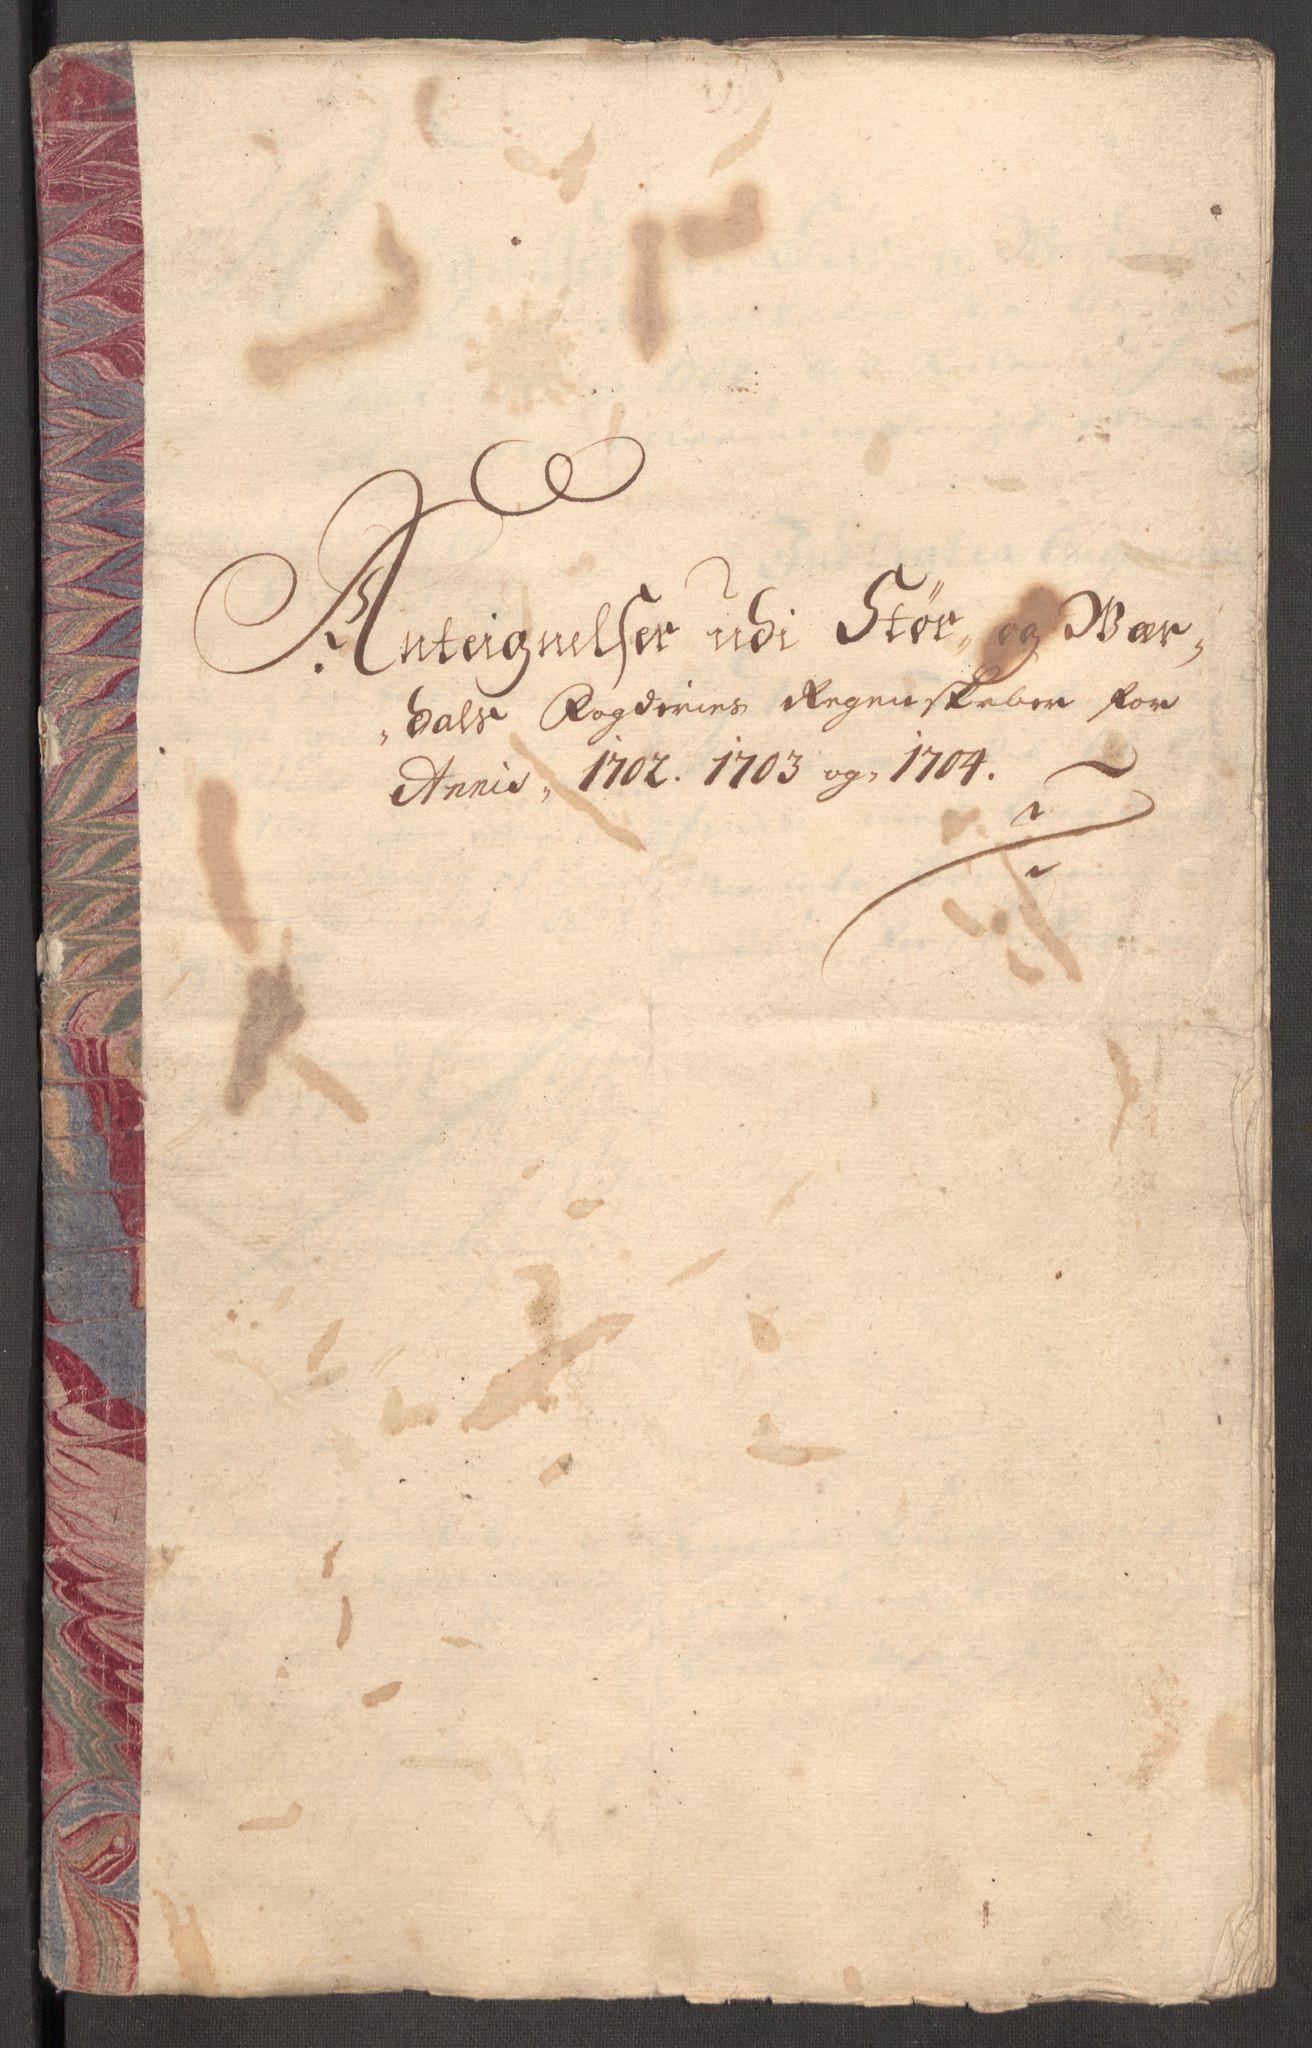 Anteignelser udi Stør- og Wær-
dals Fogderies Regenskaber for
Annis, 1702. 1703 og, 1704.